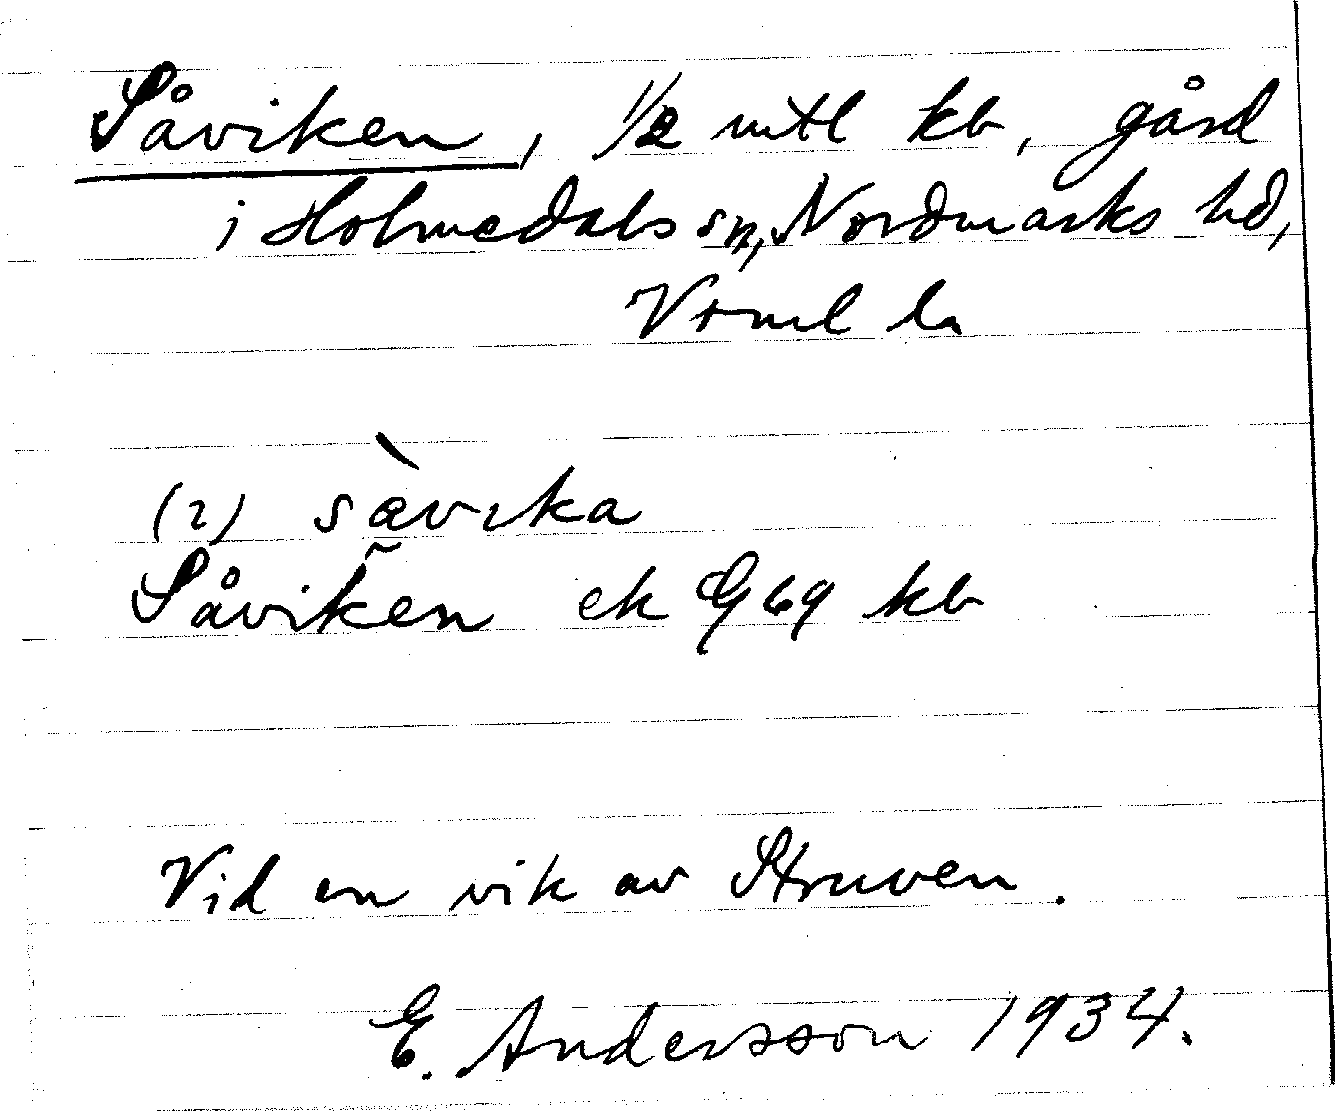 Såviken, 1/2 mtl kb, gård
i Holmedals sn, Nordmarks hd,
Vrml la
(2) sàvıka
Såviken ek G69 kb
Vid en vik av Struven.
E. Andersson 1934.